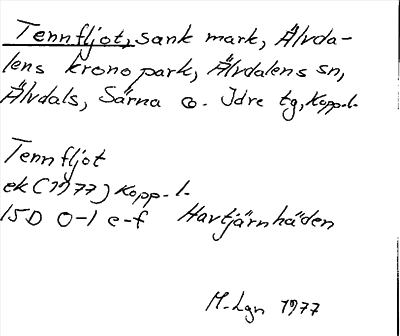 Tennfljot, sank mark, Älvda-
lens kronopark, Älvdalens sn,
Älvdals, Särna o. Idre tg, Kopp.l.
Tennfljot
ek (1977) Kopp.l.
15D 0-1 e-f Havtjärnhäden
M.Lgn 1977